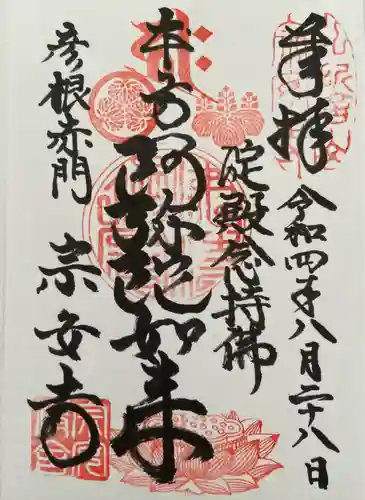 奉拝
令和四年八月二十八日
淀殿念持佛
本尊阿弥陀如来
彦根赤門
宗安寺